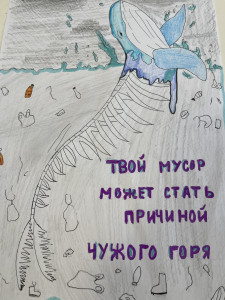 ТВОЙ МУСОР
МОЖЕТ СТАТЬ
ПРИЧИНОЙ
ЧУЖОГО ГОРЯ